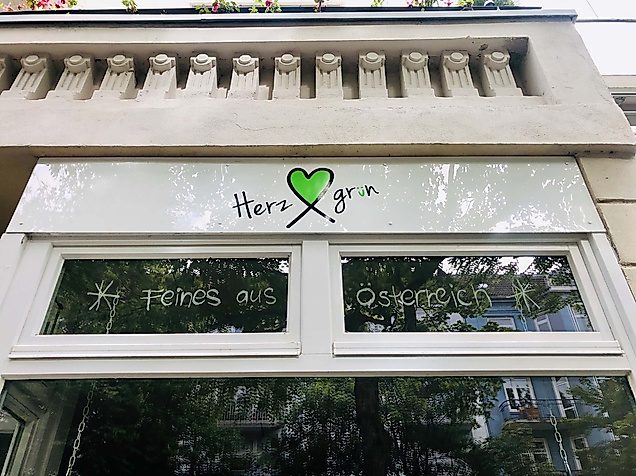 Herz grün
* Feines aus Österreich *